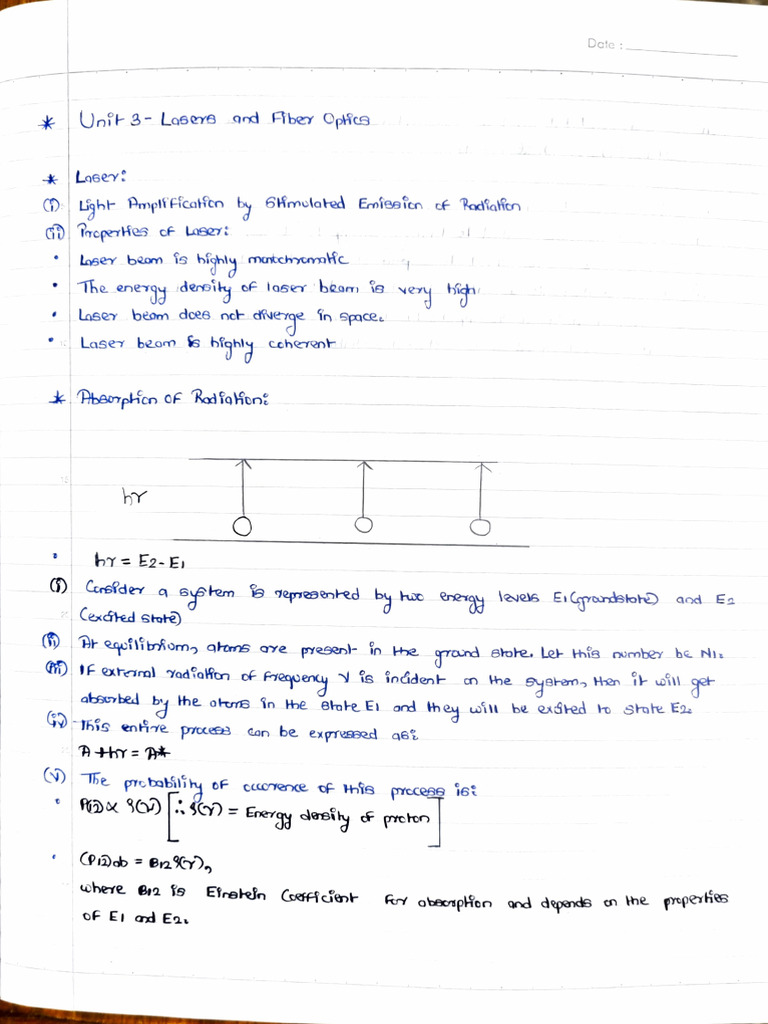 Date :
* Unit 3 - Lasers and Fiber Optics
* Laser:
(i) Light Amplification by Stimulated Emission of Radiation
(ii) Properties of Laser:
• Laser beam is highly monochromatic
• The energy density of laser beam is very high
• Laser beam does not diverge in space.
• Laser beam is highly coherent
* Absorption of Radiation:
hγ
• hγ = E2 - E1
(i) Consider a system is represented by two energy levels E1 (groundstate) and E2
(excited state)
(ii) At equilibrium, atoms are present in the ground state. Let this number be N1.
(iii) If external radiation of frequency γ is incident on the system, then it will get
absorbed by the atoms in the state E1 and they will be excited to state E2.
(iv) This entire process can be expressed as:
A + hγ = A*
(v) The probability of occurence of this process is:
• P12 ∝ ρ(γ) [∴ ρ(γ) = Energy density of proton]
• (P12)ab = B12 ρ(γ),
where B12 is Einstein Coefficient for absorption and depends on the properties
of E1 and E2.